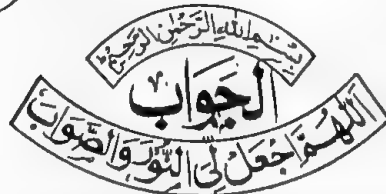 بِسْمِ اللهِ الرَّحْمٰنِ الرَّحِيْمِ
الجواب
اَللّٰهُمَّ اجْعَلْ لِّي النُّوْرَ وَالصَّوَابَ